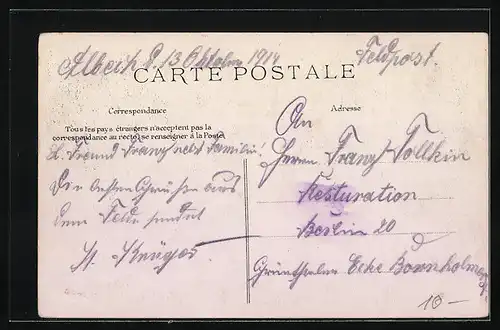 d. 13 Oktober 1914 Feldpost.
CARTE POSTALE
Correspondance
Adresse
Tous les pays étrangers n'acceptent pas la
correspondance au recto, se renseigner à la Poste,
L. Freund Franz nebst Familie!
Die besten Grüße aus
dem Felde sendet
Krüger
An
Herrn Franz
Resturation
Berlin 20
Ecke Bornholmerstr.
10 –